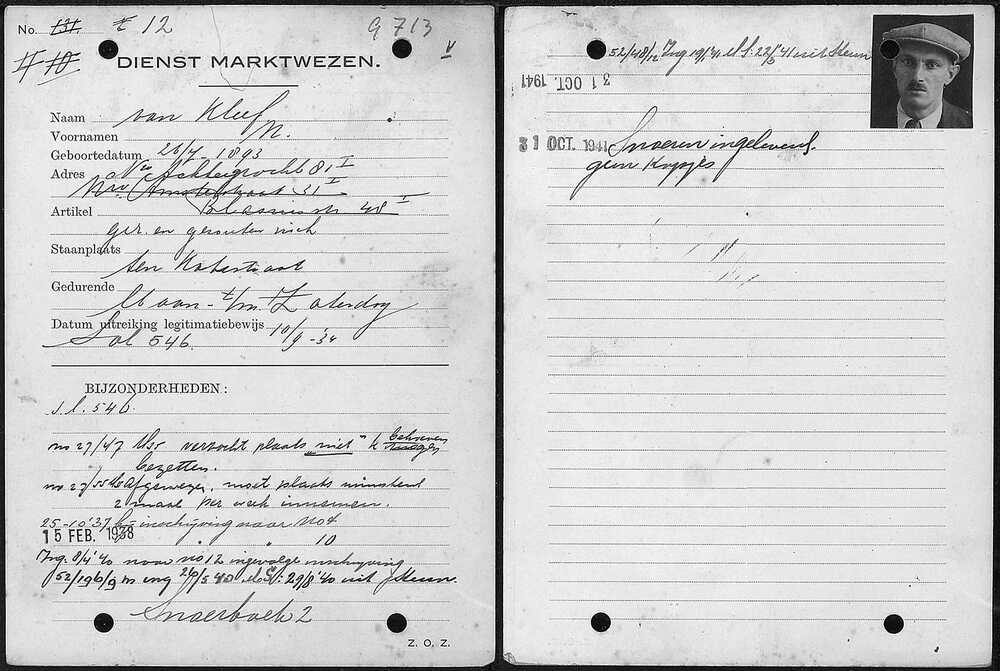 No. 131. t 12 9713
4 10 v
DIENST MARKTWEZEN.
Naam van Kleef
Voornamen N.
Geboortedatum 26/7 - 1893
Adres Nwe Achtergracht 81 I
Nw. Amstelstraat 31 I
Blasiusstr 48 I
Artikel
ger. en gezouten visch
Staanplaats
ten Katestraat
Gedurende
Maan- t/m Zaterdag
Datum uitreiking legitimatiebewijs 10/9 - 34
Sol 546.
BIJZONDERHEDEN:
S.l. 546.
no 27/47 verzocht plaats "niet" te behoeven
bezetten.
no 27/55 Afgewezen, moet plaats minstens
2 maal per week innemen.
25-10-'37 inschrijving naar No 4
15 FEB. 1938 " " 10
Ing. 8/4 '40 naar no 12 ingevolge inschrijving
52/196/9 m ing 26/5 '40 29/8 '40 uit steun.
Snoerboek 2
Z. O. Z.
52/48/12 Ing 19/1 '41 22/5 '41 uit steun
31 OCT. 1941
31 OCT. 1941 Snoeren ingeleverd.
geen Kopjes